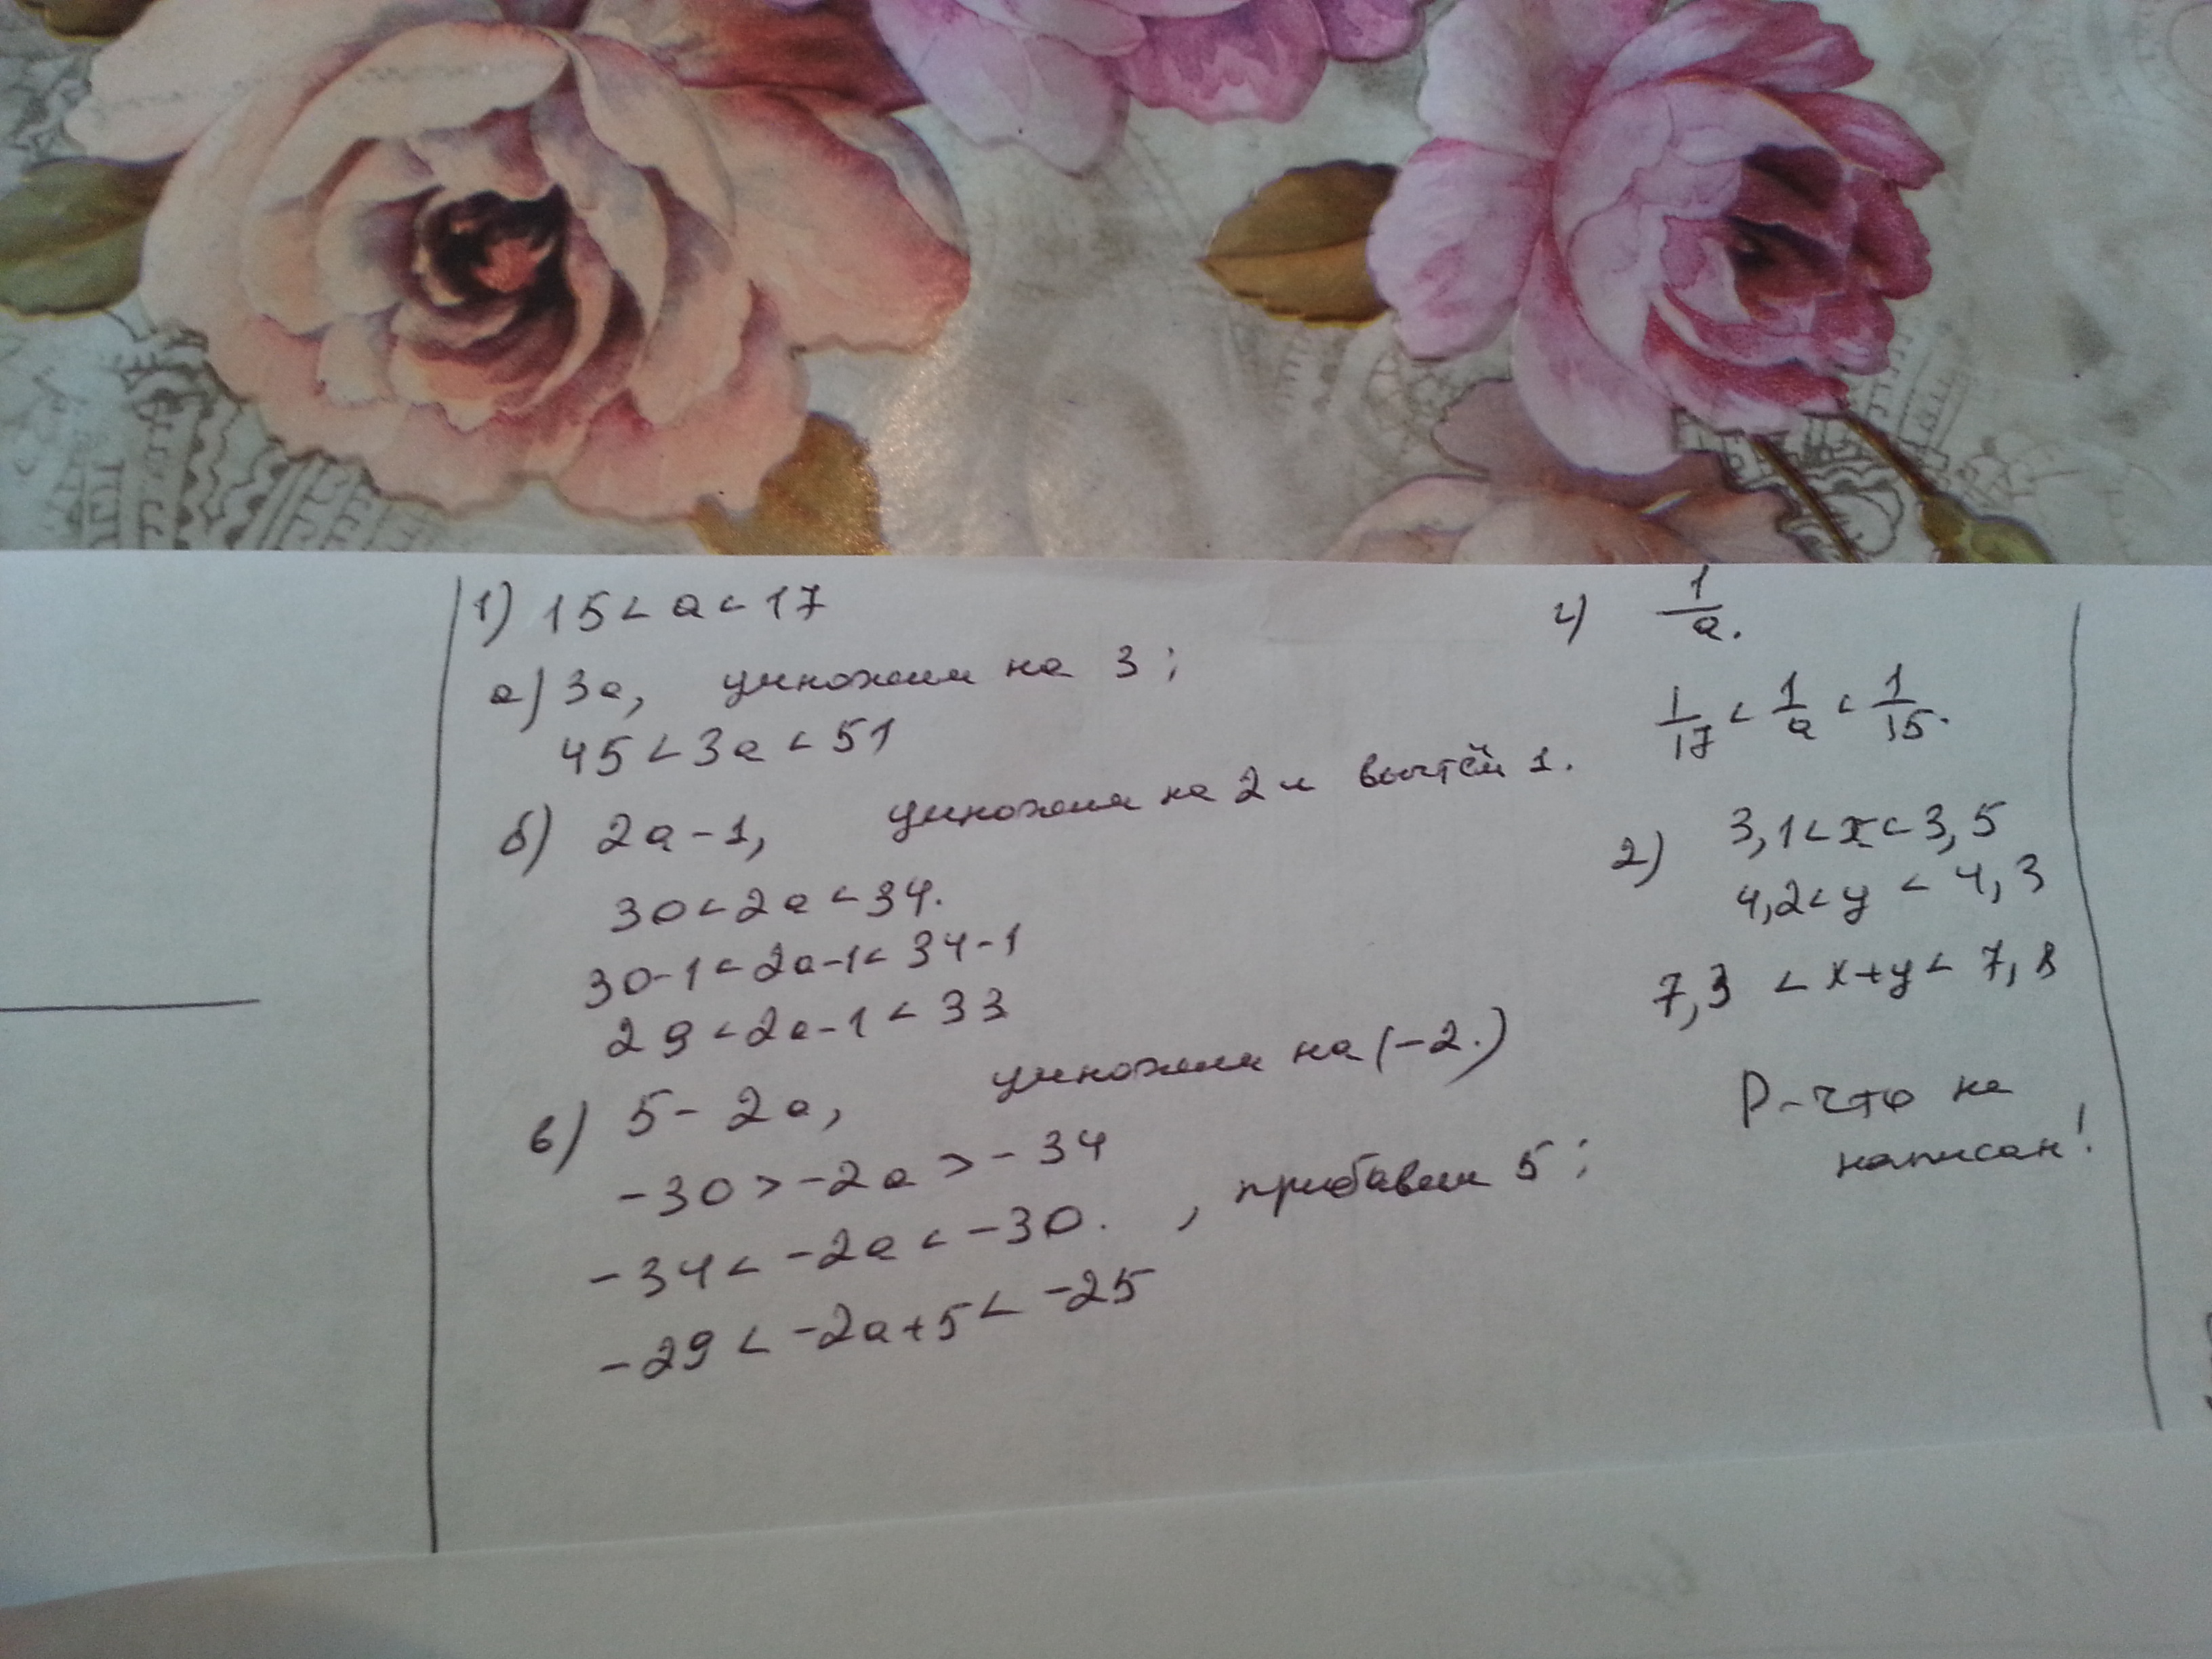 1) 15 < a < 17
а) 3a, умножим на 3;
45 < 3a < 51
б) 2a - 1, умножим на 2 и вычтем 1.
30 < 2a < 34.
30-1 < 2a-1 < 34-1
29 < 2a-1 < 33
в) 5 - 2a, умножим на (-2.)
-30 > -2a > -34
-34 < -2a < -30. , прибавим 5;
-29 < -2a+5 < -25
г) 1/a.
1/17 < 1/a < 1/15.
2) 3,1 < x < 3,5
4,2 < y < 4,3
7,3 < x+y < 7,8
P-что не
написан!